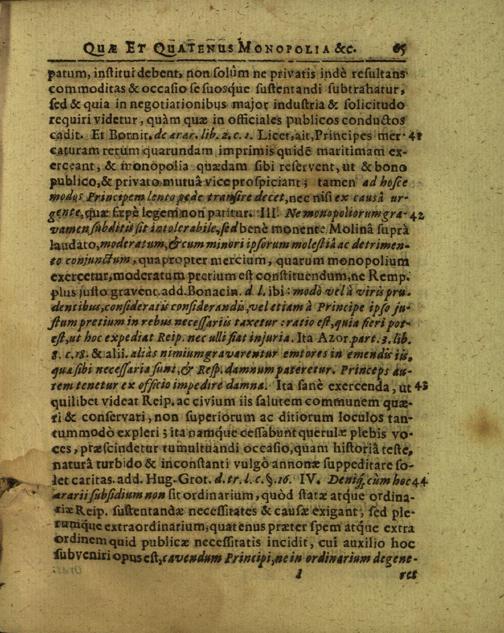 QUÆ ET QUATENUS MONOPOLIA &c. 65
patum, institui debent, non solùm ne privatis indè resultans
commoditas & occasio se suosque sustentandi subtrahatur,
sed & quia in negotiationibus major industria & solicitudo
requiri videtur, quàm quæ in officiales publicos conductos
cadit. Et Bornit. de ærar. lib. 2. c. 1. Licet, ait, Principes mer- 41
caturam rerum quarundam imprimis quidē maritimam ex-
erceant, & monopolia quædam sibi reservent, ut & bono
publico, & privato mutuâ vice prospiciant; tamen ad hosce
modos Principem lento pede transire decet, nec nisi ex causâ ur-
gente, quæ sæpè legem non patitur. III. Ne monopoliorum gra- 42
vamen subditis sit intolerabile, sed benè monente Molinâ suprà
laudato, moderatum, & cum minori ipsorum molestiâ ac detrimen-
to conjunctum, quapropter mercium, quarum monopolium
exercetur, moderatum pretium est constituendum, ne Remp.
plus justo gravent. add. Bonacin. d. l. ibi: modò vel à viris pru-
dentibus, consideratis considerandis, vel etiam à Principe ipso ju-
stum pretium in rebus necessariis taxetur: ratio est, quia fieri pot-
est, ut hoc expediat Reip. nec ulli fiat injuria. Ita Azor. part. 3. lib.
8. c. 18. & alii. aliàs nimium gravarentur emtores in emendis iis,
quæ sibi necessaria sunt, & Resp. damnum pateretur. Princeps au-
tem tenetur ex officio impedire damna. Ita sanè exercenda, ut 43
quilibet videat Reip. ac civium iis salutem communem quæ-
ri & conservari, non superiorum ac ditiorum loculos tan-
tummodò expleri; ita namque cessabunt querulæ plebis vo-
ces, præscindetur tumultuandi occasio, quam historiâ teste,
naturâ turbido & inconstanti vulgò annonæ suppeditare so-
let caritas. add. Hug. Grot. d. tr. l. c. §. 16. IV. Deniq, cùm hoc 44
ærarii subsidium non sit ordinarium, quòd statæ atque ordina-
riæ Reip. sustentandæ necessitates & causæ exigant, sed ple-
rumque extraordinarium, quatenus præter spem atque extra
ordinem quid publicæ necessitatis incidit, cui auxilio hoc
subveniri opus est, cavendum Principi, ne in ordinarium degene-
ret